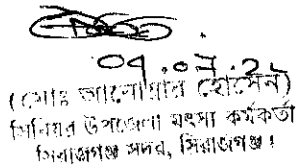 ০৭.০৭.২২
(মোঃ আনোয়ার হোসেন)
সিনিয়র উপজেলা মৎস্য কর্মকর্তা
সিরাজগঞ্জ সদর, সিরাজগঞ্জ।